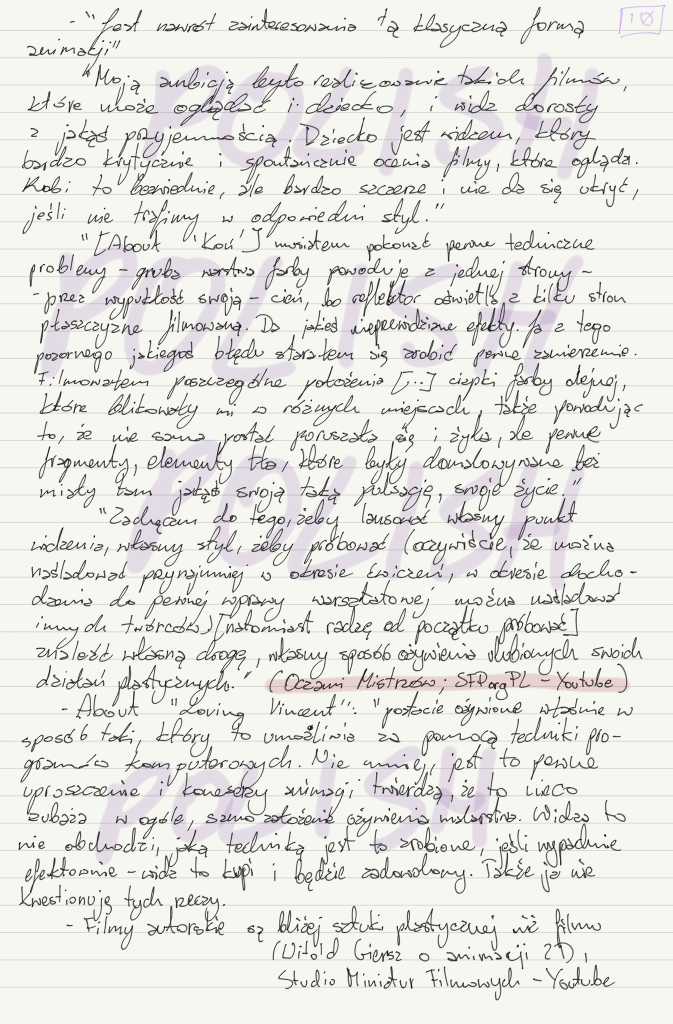 10
- "Jest nawrót zainteresowania tą klasyczną formą
animacji"
"Moją ambicją było realizowanie takich filmów,
które może oglądać i dziecko, i widz dorosły
z jakąś przyjemnością. Dziecko jest widzem, który
bardzo krytycznie i spontanicznie ocenia filmy, które ogląda.
Robi to bezwiednie, ale bardzo szczerze i nie da się ukryć,
jeśli nie trafimy w odpowiedni styl."
"[About 'Koń'] musiałem pokonać pewne techniczne
problemy - gruba warstwa farby powoduje z jednej strony -
- przez wypukłość swoją - cień, bo reflektor oświetla z kilku stron
płaszczyznę filmowaną. Da jakieś nieprzewidziane efekty. Ja z tego
pozornego jakiegoś błędu starałem się zrobić pewne zamierzenie.
Filmowałem poszczególne położenia [...] ciapki farby olejnej,
które blikowały mi w różnych miejscach, także powodując
to, że nie sama postać poruszała się i żyła, ale pewne
fragmenty, elementy tła, które były domalowywane też
miały tam jakąś swoją taką pulsację, swoje życie."
"Zachęcam do tego, żeby lansować własny punkt
widzenia, własny styl, żeby próbować (oczywiście, że można
naśladować przynajmniej w okresie ćwiczeń, w okresie docho-
dzenia do pewnej wprawy warsztatowej można naśladować
innych twórców) [natomiast radzę od początku próbować]
znaleźć własną drogę, własny sposób ożywienia ulubionych swoich
działań plastycznych." (Oczami Mistrzów; SFPorgPL - Youtube)
- About "Loving Vincent": "postacie ożywione właśnie w
sposób taki, który to umożliwia za pomocą techniki pro-
gramów komputerowych. Nie mniej, jest to pewne
uproszczenie i koneserzy animacji twierdzą, że to nieco
zubaża w ogóle, samo założenie ożywienia malarstwa. Widza to
nie obchodzi, jaką techniką jest to zrobione, jeśli wypadnie
efektownie - widz to kupi i będzie zadowolony. Także ja nie
kwestionuję tych rzeczy.
- Filmy autorskie są bliżej sztuki plastycznej niż filmu
(Witold Giersz o animacji 2D),
Studio Miniatur Filmowych - Youtube
POLISH
POLISH
POLISH
POLISH